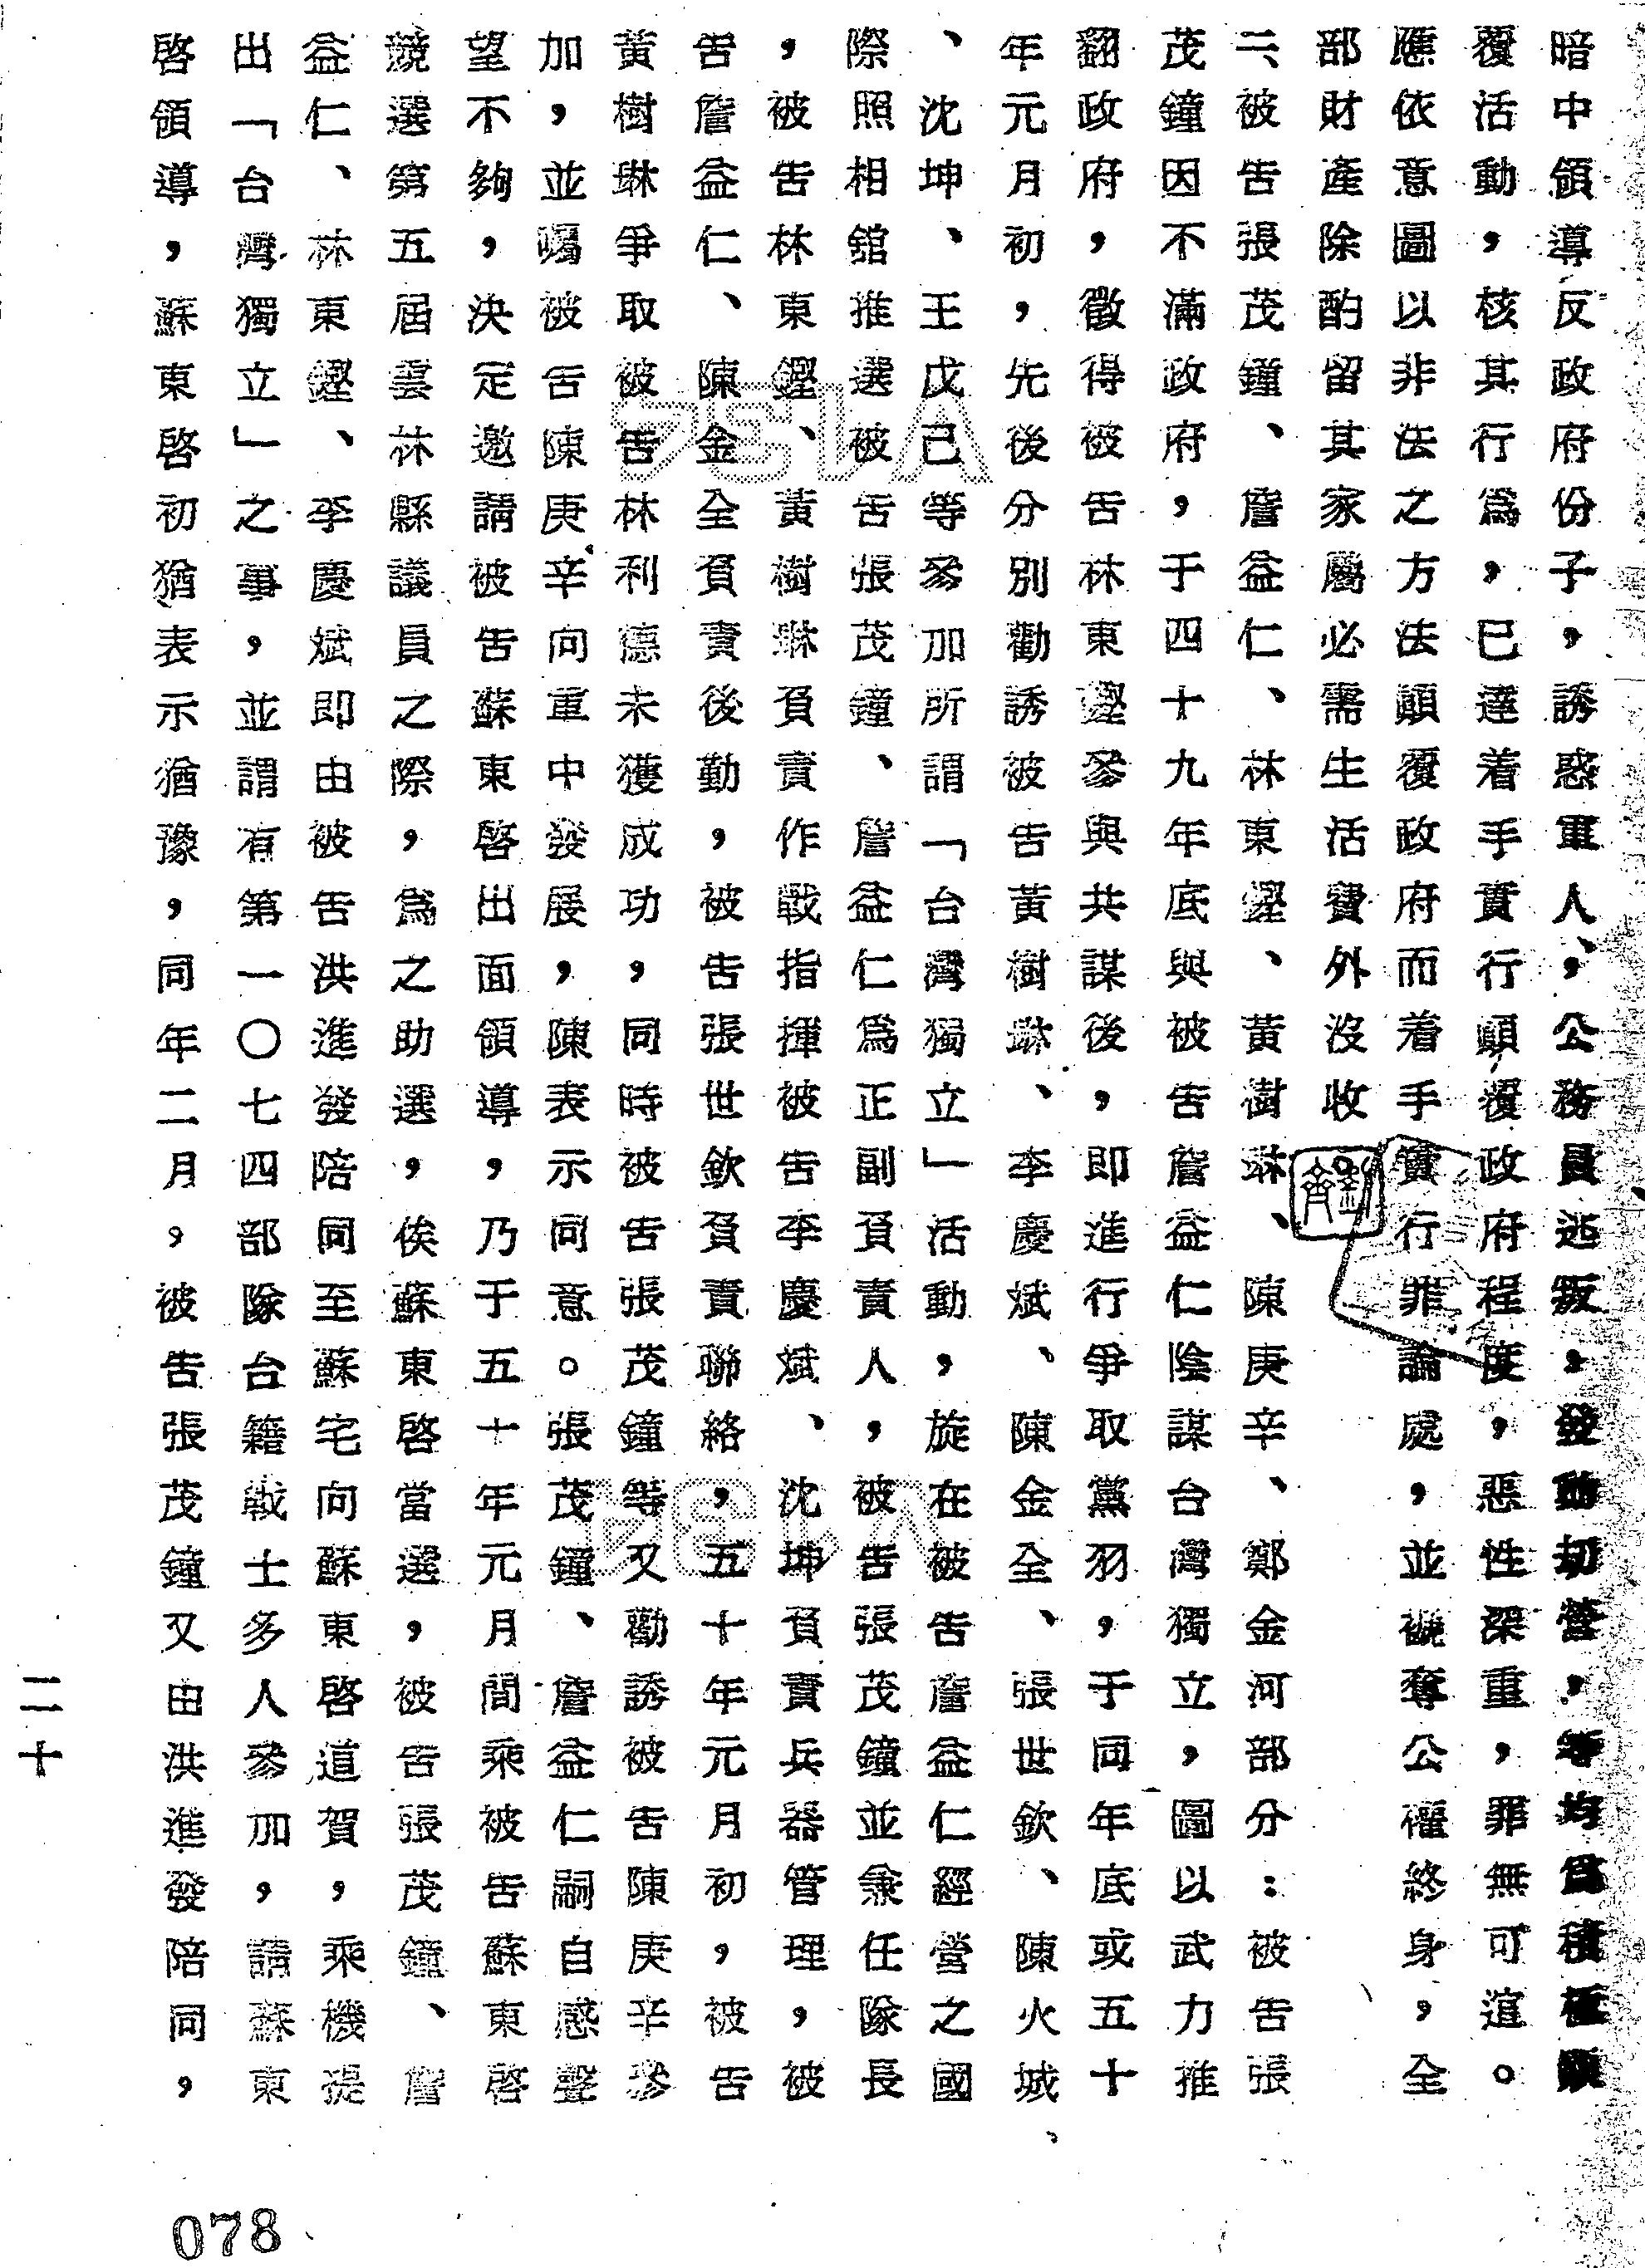 暗中領導反政府份子，誘惑軍人、，公務員逃叛，發動刧營，等均爲積極顚
覆活動，核其行爲，已達着手實行顚覆政府程度，惡性深重，罪無可逭。
應依意圖以非法之方法顚覆政府而着手實行罪論處，並褫奪公權終身，全
部財產除酌留其家屬必需生活費外沒收。
二、被告張茂鐘、詹益仁、林東鏗、黃樹琳、陳庚辛、鄭金河部分：被告張
茂鐘因不滿政府，于四十九年底與被告詹益仁陰謀台灣獨立，圖以武力推
翻政府，徵得被告林東鏗參與共謀後，即進行爭取黨羽，于同年底或五十
年元月初，先後分別勸誘被告黃樹琳、李慶斌、陳金全、張世欽、陳火城、
、沈坤、王戊己等參加所謂「台灣獨立」活動，旋在被告詹益仁經營之國
際照相舘推選被告張茂鐘、詹益仁爲正副負責人，被告張茂鐘並兼任隊長
，被告林東鏗、黃樹琳負責作戰指揮被告李慶斌、沈坤負責兵器管理，被
告詹益仁、陳金全負責後勤，被告張世欽負責聯絡，五十年元月初，被告
黃樹琳爭取被告林利德未獲成功，同時被告張茂鐘等又勸誘被告陳庚辛參
加，並囑被告陳庚辛向軍中發展，陳表示同意。張茂鐘、詹益仁嗣自感聲
望不夠，決定邀請被告蘇東啓出面領導，乃于五十年元月間乘被告蘇東啓
競選第五屆雲林縣議員之際，爲之助選，俟蘇東啓當選，被告張茂鐘、詹
益仁、林東鏗、李慶斌即由被告洪進發陪同至蘇宅向蘇東啓道賀，乘機提
出「台灣獨立」之事，並謂有第一〇七四部隊台籍戰士多人參加，請蘇東
啓領導，蘇東啓初猶表示猶豫，同年二月。被告張茂鐘又由洪進發陪同，
二十
078